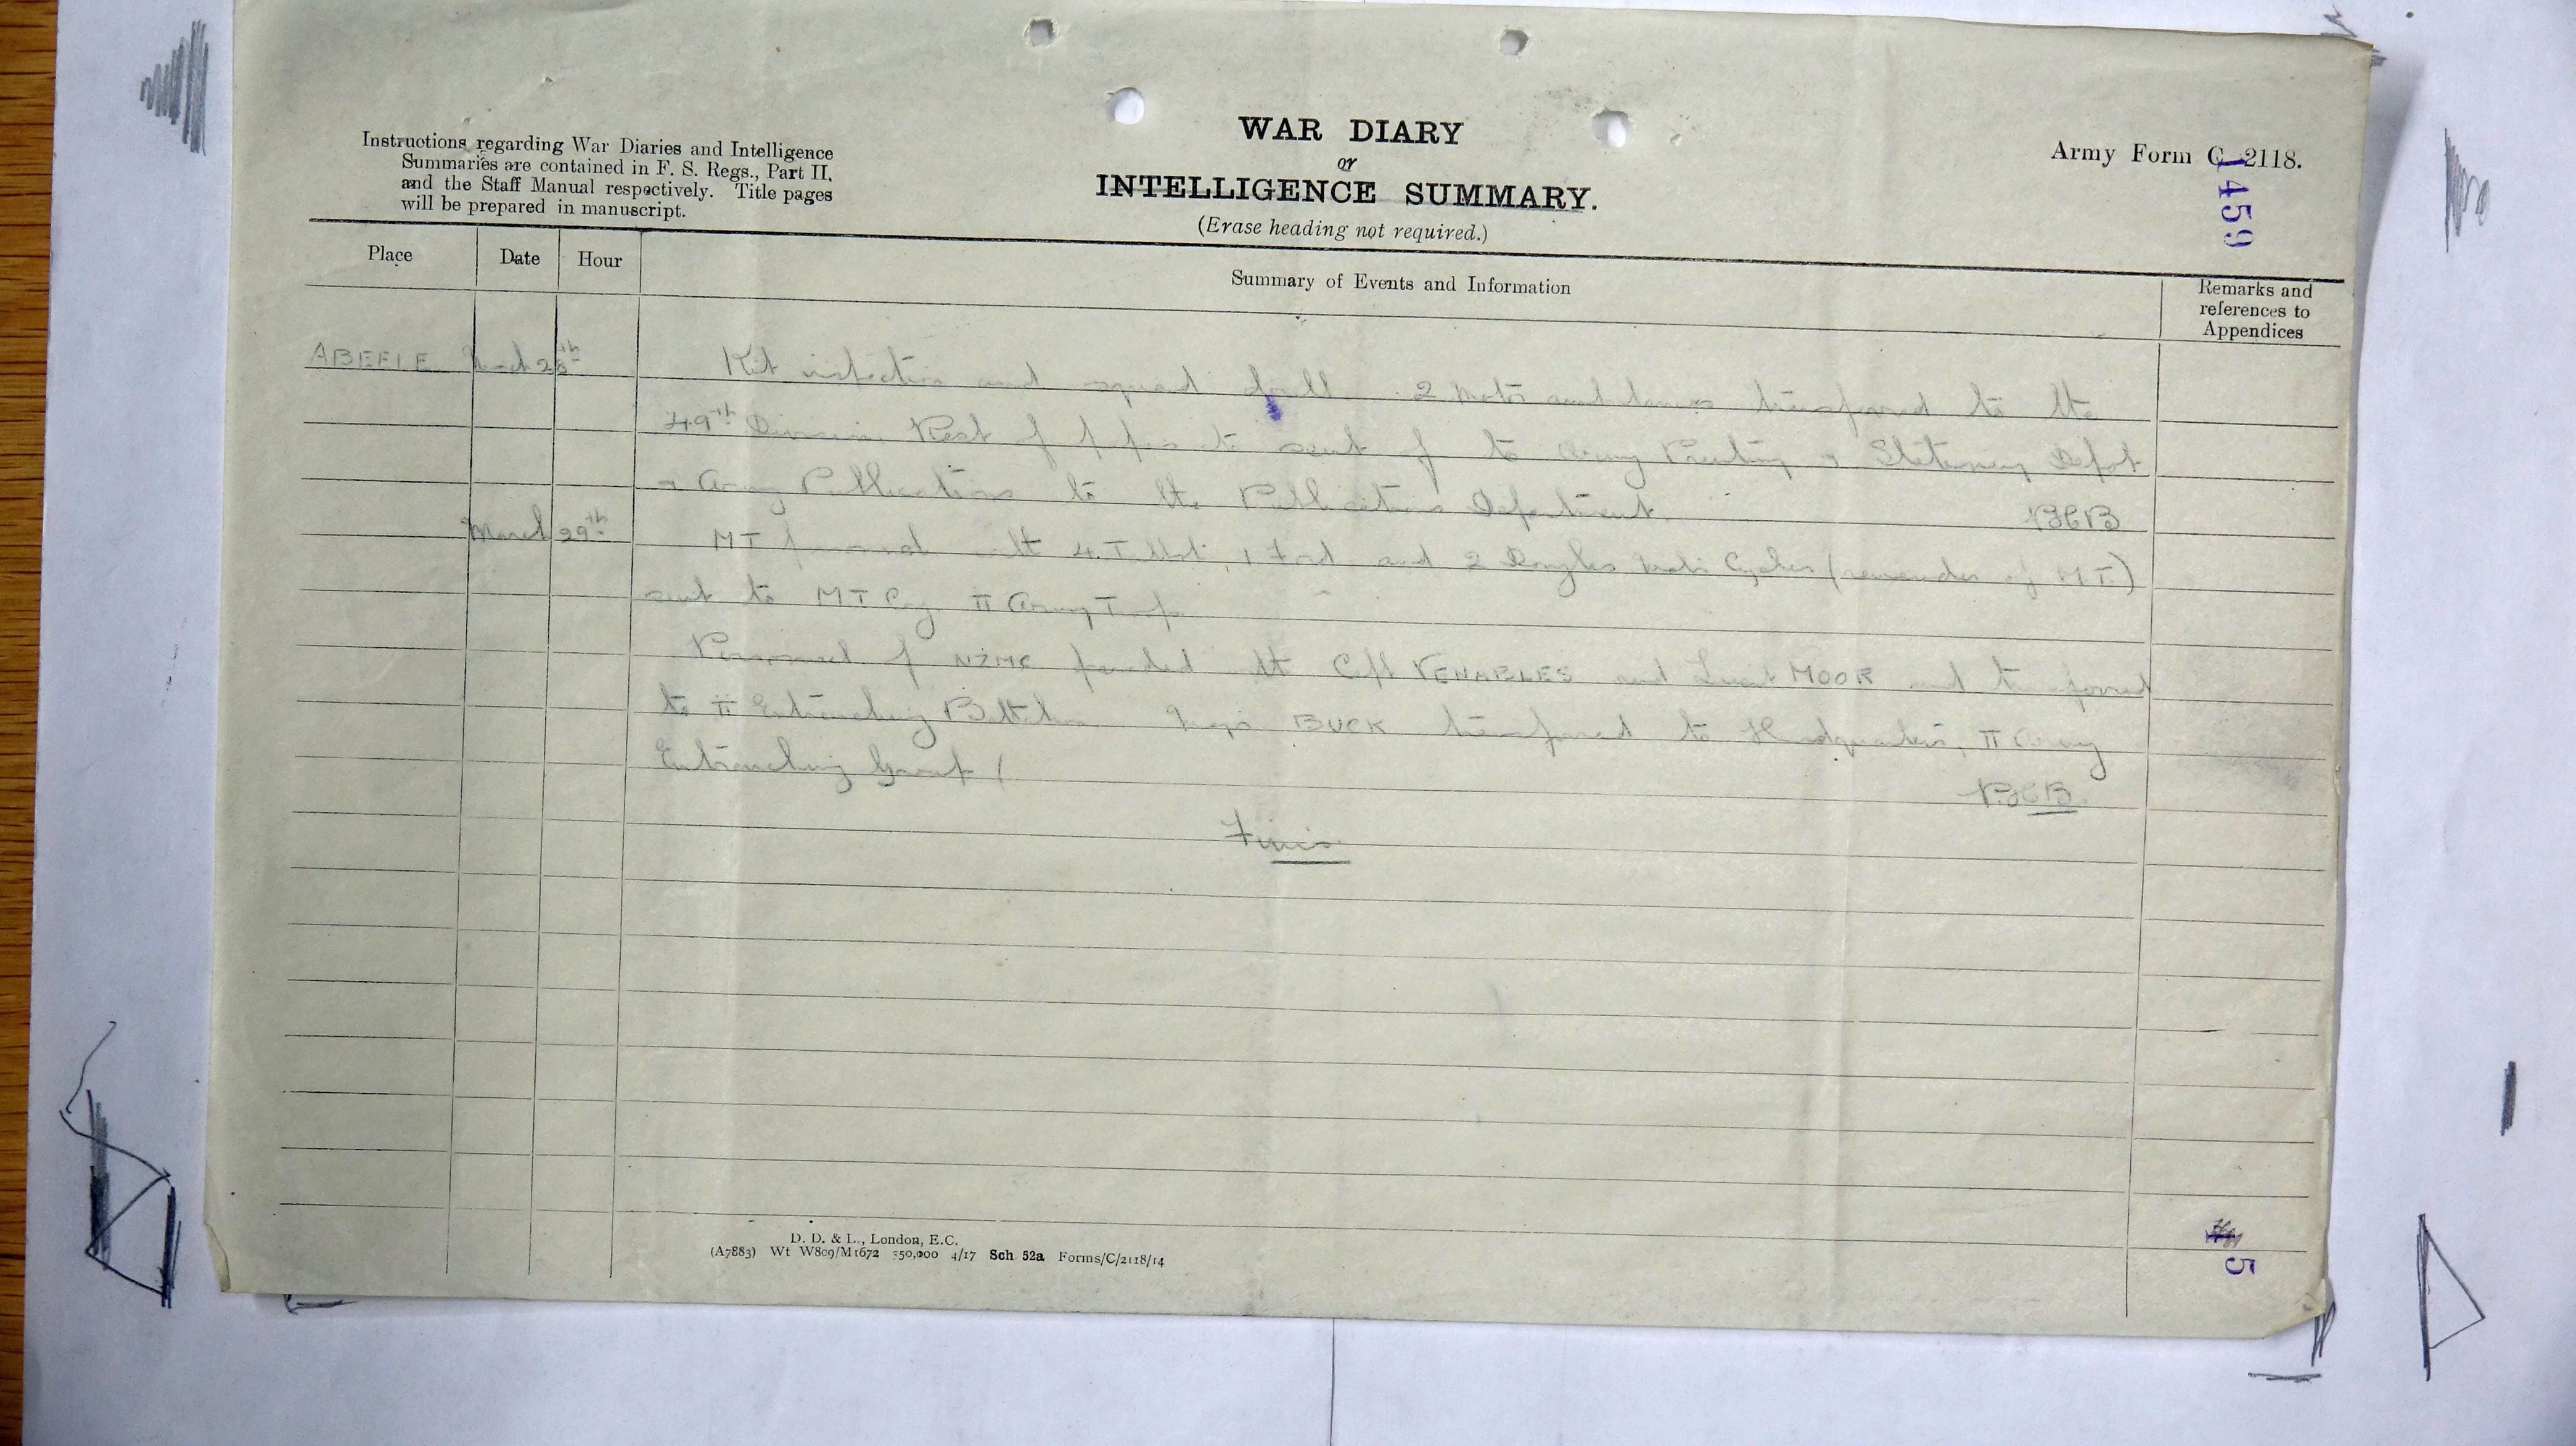 Instructions regarding War Diaries and Intelligence
Summaries are contained in F. S. Regs., Part II.
and the Staff Manual respectively. Title pages
will be prepared in manuscript.
WAR DIARY
or
INTELLIGENCE SUMMARY.
(Erase heading not required.)
Army Form C. 2118.
1459
Place Date Hour Summary of Events and Information Remarks and
references to
Appendices
ABEELE March 28th Kit inspection and squad drill. 2 Motor ambulances transferred to the
49th Division. Rest of papers etc sent off to Army Printing & Stationery Depot
& Army Publications to the Publications Department.
March 29th MT personnel with 4 Talbot, 1 Ford and 2 Douglas Motor Cycles (remainder of MT.)
sent to MT Coy. II Army Troops
Personnel of NZMC paraded with Capt VENABLES and Lieut MOOR and transferred
to II Entrenching Battalion. Major BUCK transferred to Headquarters, II Army
Entrenching Group
Finis
D. D. & L., London, E.C.
(A7883) Wt W809/M1672 350,000 4/17 Sch. 52a Forms/C/2118/14
5